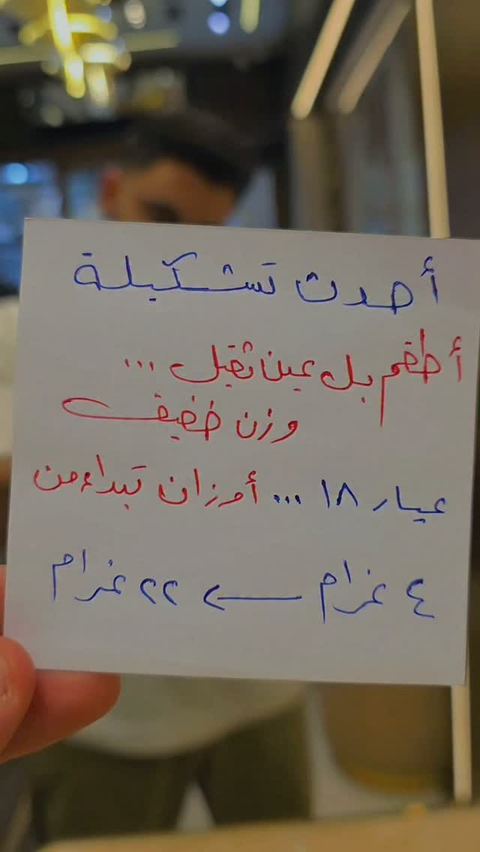 أحدث تشكيلة
أطقم بل عين ثقيل ...
وزن خفيف
عيار ١٨ ... أوزان تبداء من
٤ غرام ← ٢٢ غرام